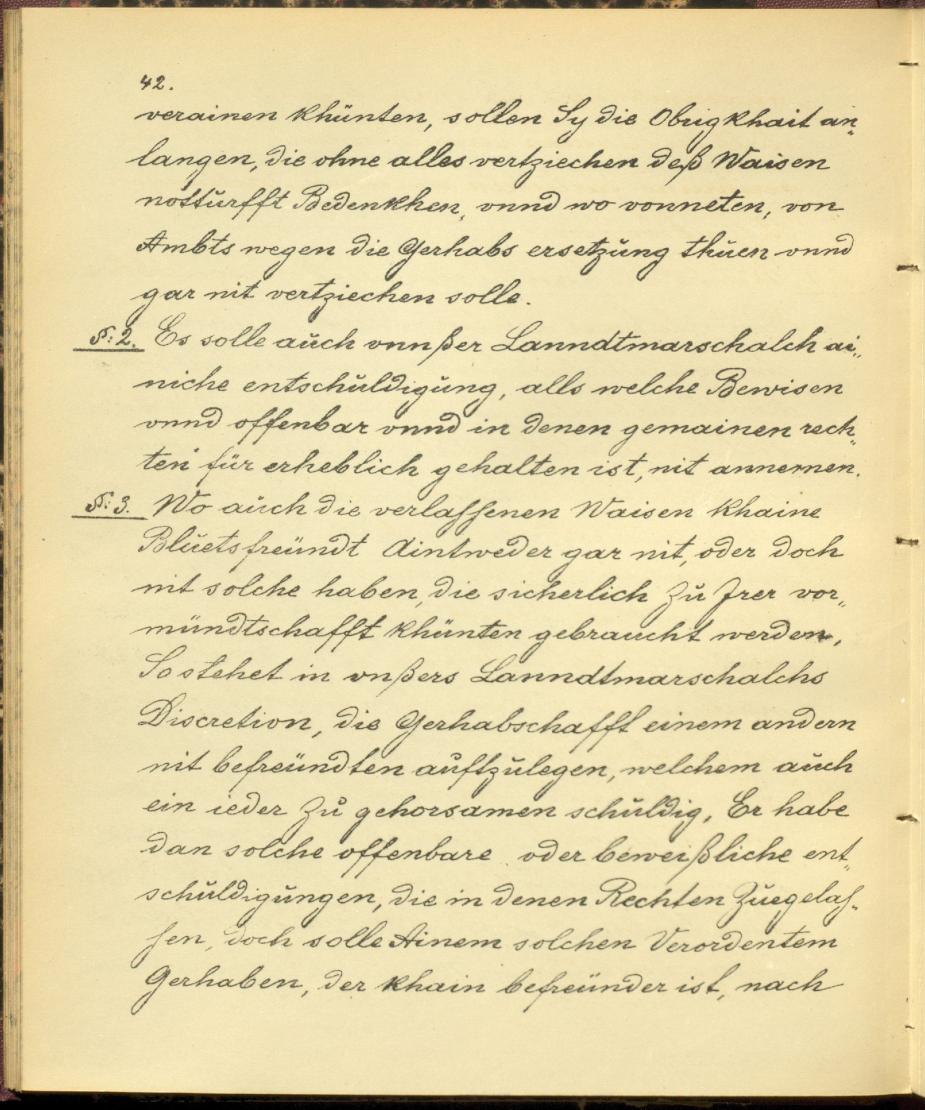 42.
verainen khünten, sollen Sy die Obrigkhait an„
langen, die ohne alles vertziechen deß Waisen
notturfft Bedenkhen, vnnd wo vonneten, von
Ambts wegen die Gerhabs ersetzung thuen vnnd
gar nit vertziechen solle.
§: 2. Es solle auch vnnßer Lanndtmarschalch ai„
niche entschuldigung, alls welche Bewisen
vnnd offenbar vnnd in denen gemainen rech„
ten für erheblich gehalten ist, nit annemen.
§: 3. Wo auch die verlassenen Waisen khaine
Bluetsfreündt Aintweder gar nit, oder doch
nit solche haben, die sicherlich zu Irer vor„
mündtschafft khünten gebraucht werden,
So stehet in vnßers Lanndtmarschalchs
Discretion, die Gerhabschafft einem andern
nit befreündten aufzulegen, welchem auch
ein ieder zu gehorsamen schuldig, Er habe
dan solche offenbare oder beweißliche ent„
schuldigungen, die in denen Rechten zuegelas„
sen, doch solle Ainem solchen Verordentem
Gerhaben, der khain befreünder ist, nach